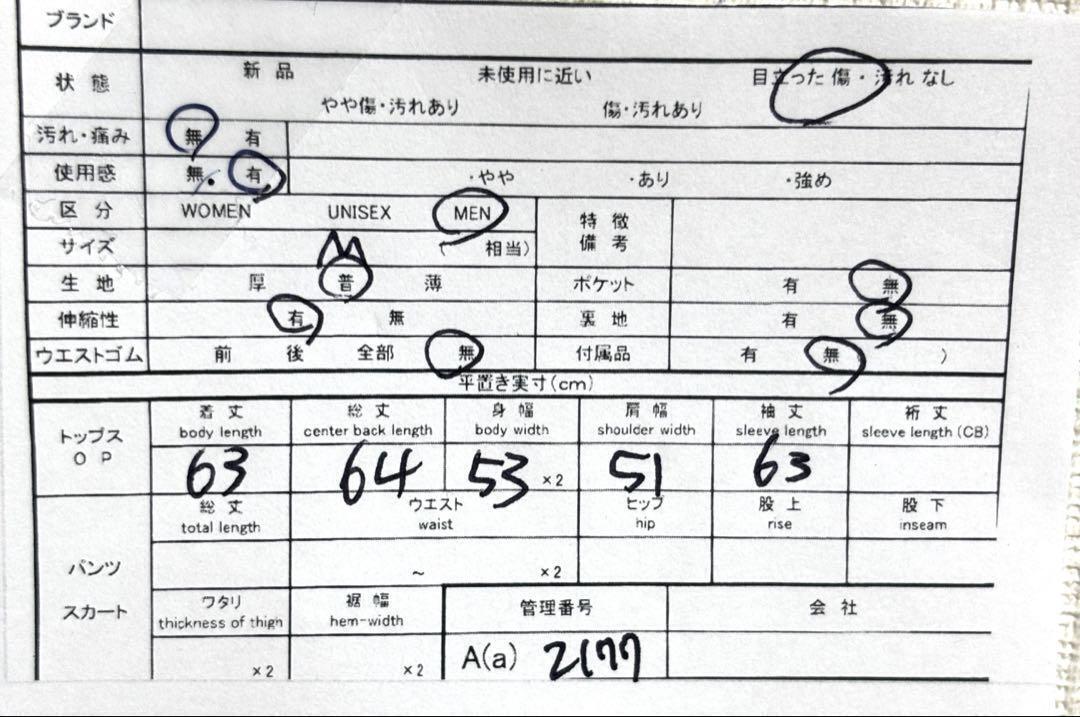 ブランド
状態 新品 未使用に近い 目立った傷・汚れなし
やや傷・汚れあり 傷・汚れあり
汚れ・痛み 無 有
使用感 無. 有 ・やや ・あり ・強め
区分 WOMEN UNISEX MEN 特徴
備考
サイズ M ( 相当)
生地 厚 普 薄 ポケット 有 無
伸縮性 有 無 裏地 有 無
ウエストゴム 前 後 全部 無 付属品 有 無 )
平置き実寸(cm)
トップス
OP
着丈 総丈 身幅 肩幅 袖丈 裄丈
body length center back length body width shoulder width sleeve length sleeve length (CB)
63 64 53 ×2 51 63
パンツ
スカート
総丈 ウエスト ヒップ 股上 股下
total length waist hip rise inseam
~ ×2
ワタリ 裾幅 管理番号 会社
thickness of thigh hem-width
×2 ×2 A(a) 2177